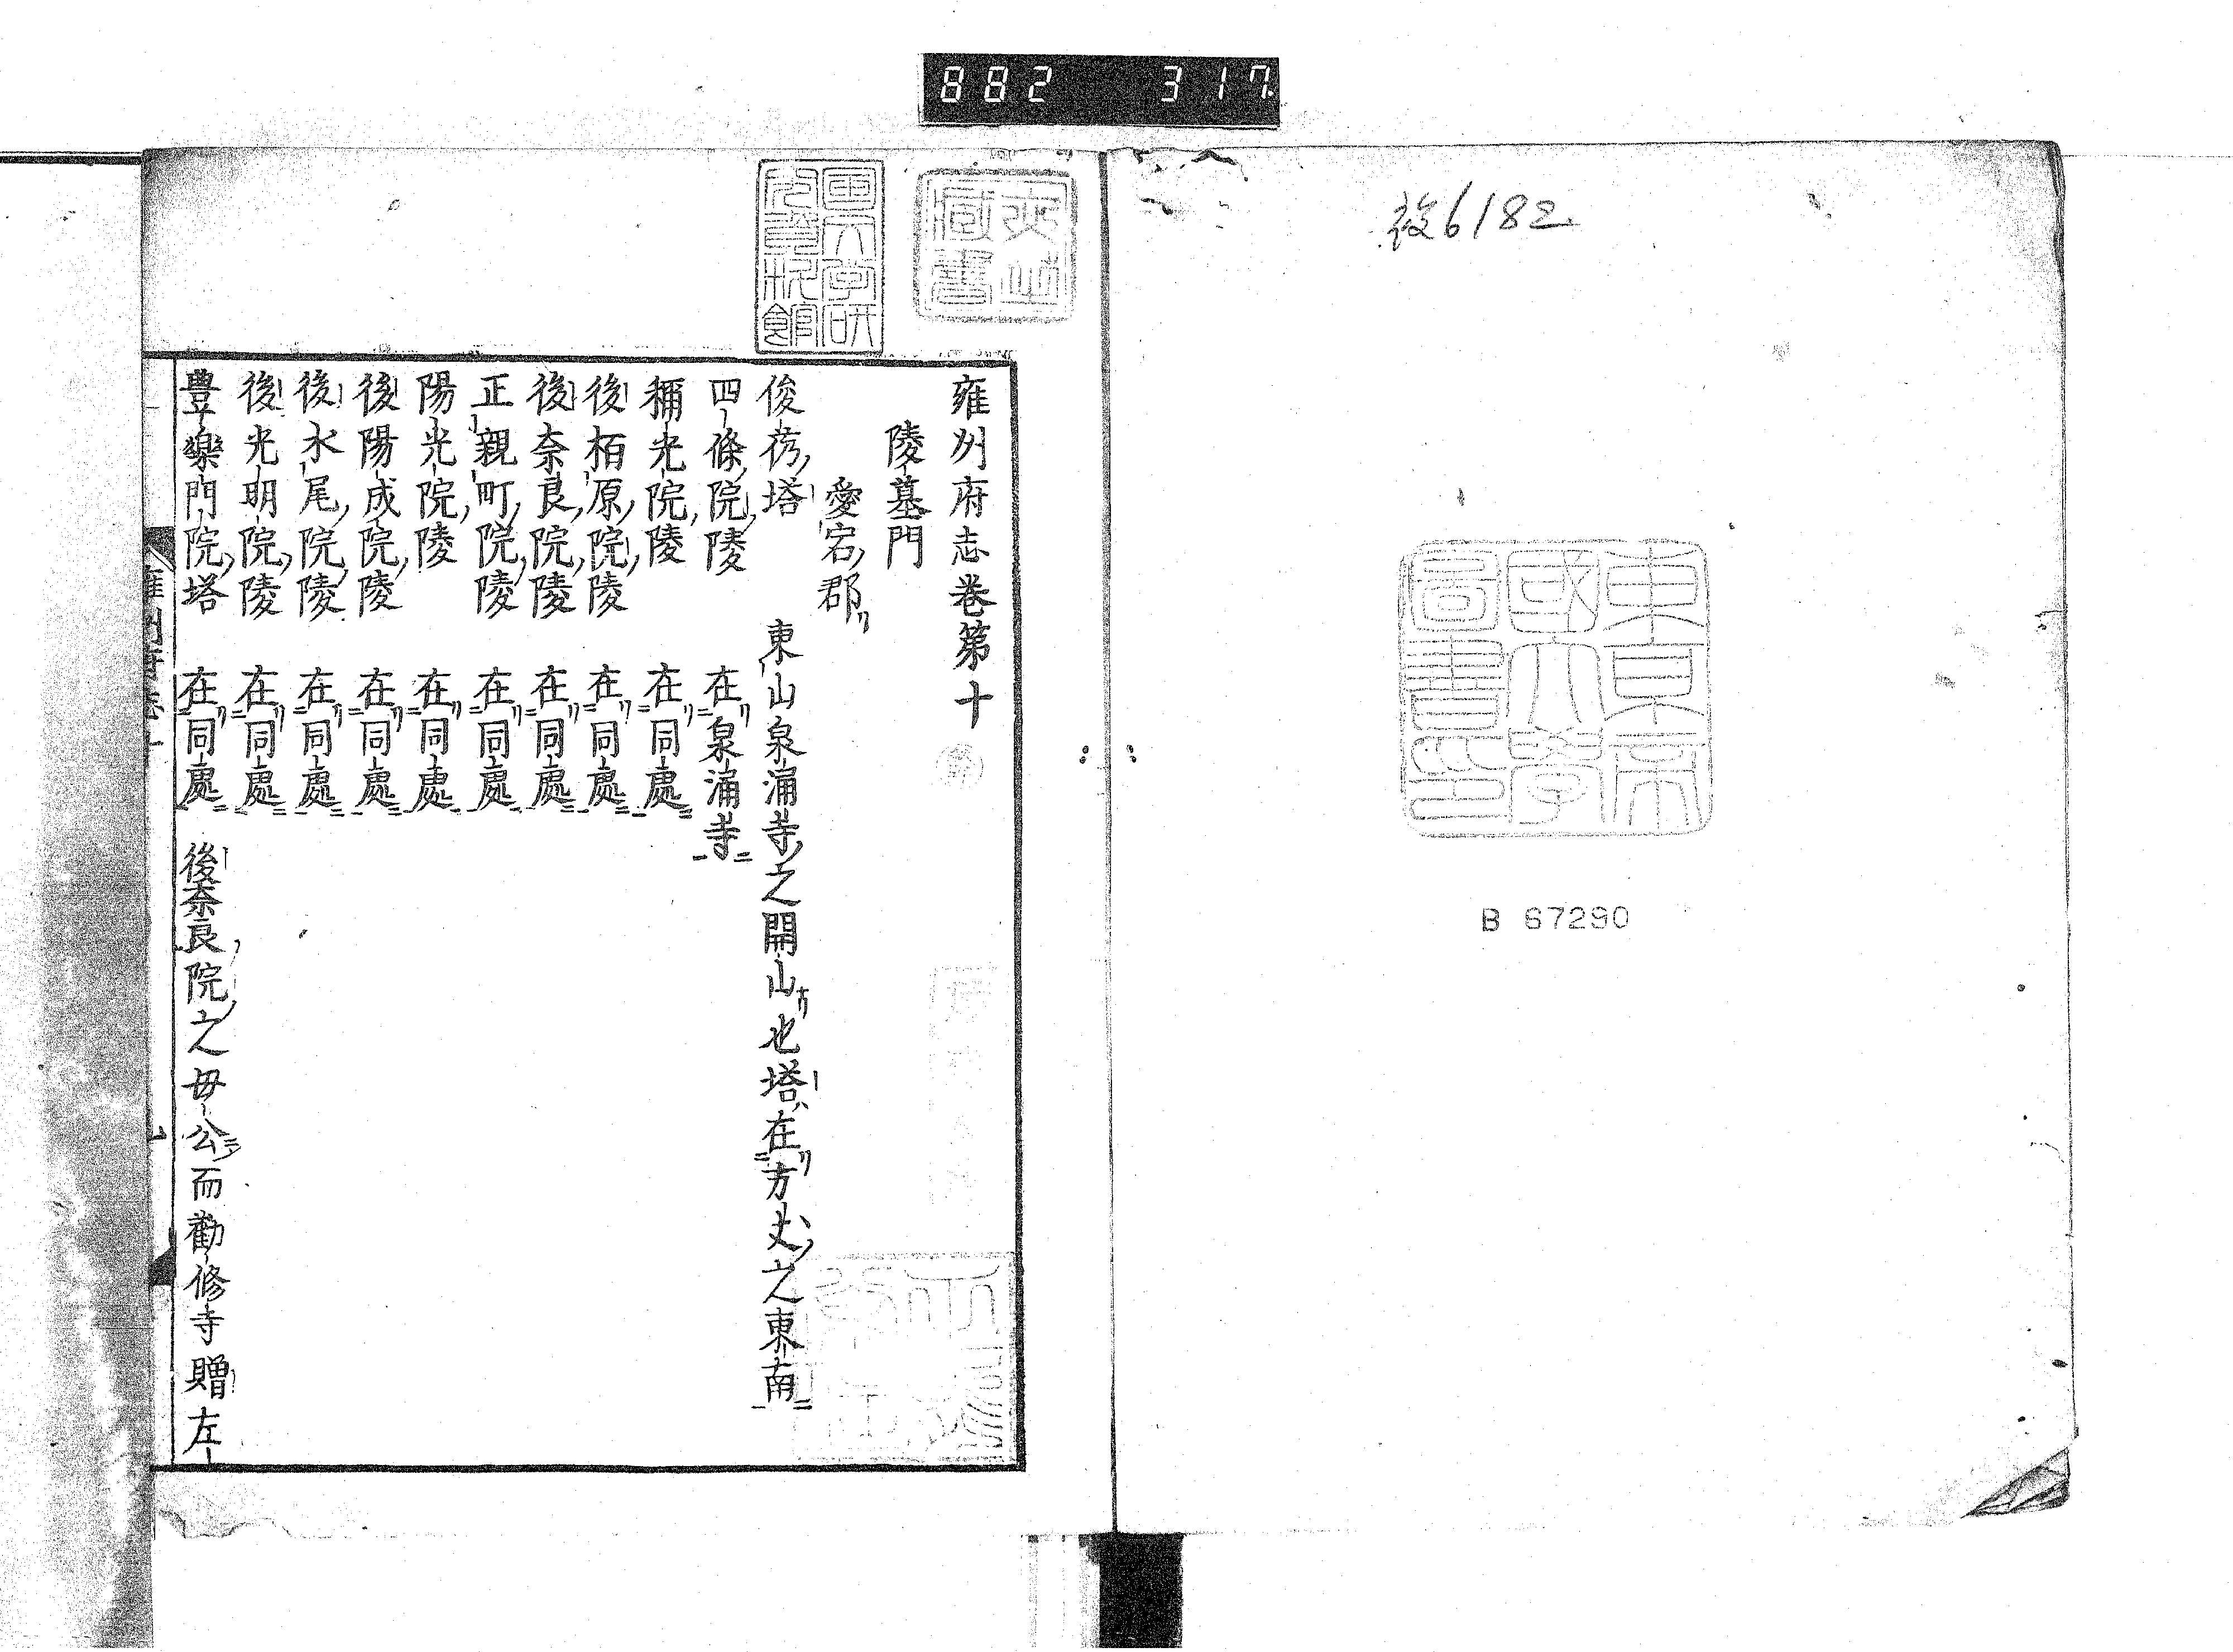 882 317
6182
東京帝
國大學
圖書印
B 67290
雍州府志巻第十
陵墓門
愛宕郡
俊芿塔 東山泉涌寺之開山也塔在方丈之東南
四條院陵 在泉涌寺
稱光院陵 在同處
後栢原院陵 在同處
後奈良院陵 在同處
正親町院陵 在同處
陽光院陵 在同處
後陽成院陵 在同處
後水尾院陵 在同處
後光明院陵 在同處
豊樂門院塔 在同處 後奈良院之母公而勸修寺贈左